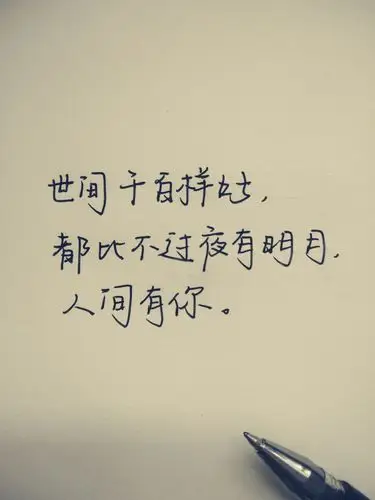 世间千百样好,
都比不过夜有明月,
人间有你。